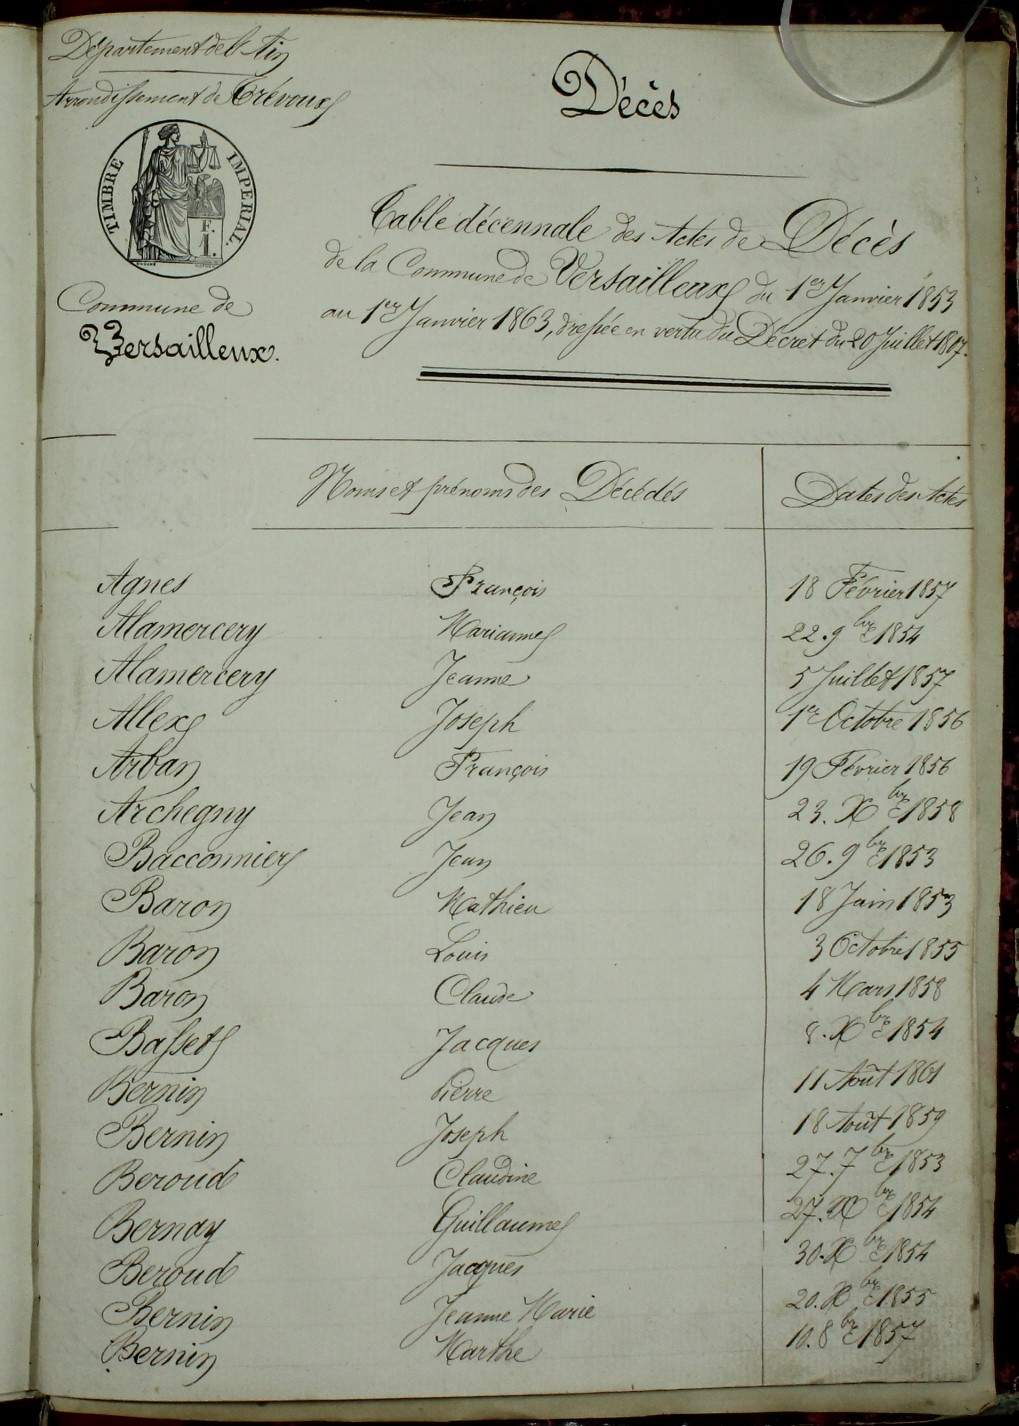 Département de l'Ain
Arrondissement de Trévoux
TIMBRE IMPERIAL
F.
1.
Commune de
Versailleux.
Décès
Table décennale des Actes de Décès
de la Commune de Versailleux du 1er Janvier 1853
au 1er Janvier 1863, dressée en vertu du Décret du 20 Juillet 1807.
Noms et prénoms des Décédés Dates des Actes
Agnes François 18 Février 1857
Alamercery Marianne 22. 9bre 1854
Alamercery Jeanne 5 Juillet 1857
Allex Joseph 1er Octobre 1856
Arban François 19 Février 1856
Archegny Jean 23. Xbre 1858
Bacconnier Jean 26. 9bre 1853
Baron Mathieu 18 Juin 1853
Baron Louis 3 Octobre 1855
Baron Claude 4 Mars 1858
Basset Jacques 8. Xbre 1854
Bernin Pierre 11 Août 1861
Bernin Joseph 18 Août 1859
Beroud Claudine 27. 7bre 1853
Bernay Guillaume 27. Xbre 1854
Beroud Jacques 30. Xbre 1854
Bernin Jeanne Marie 20. Xbre 1855
Bernin Marthe 10. 8bre 1857